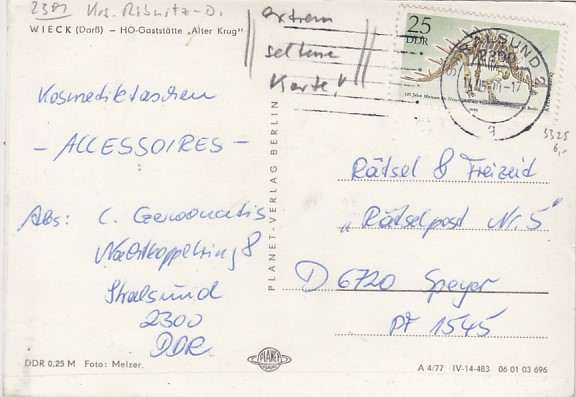 2381 Krs. Ribnitz-D.
WIECK (Darß) – HO-Gaststätte „Alter Krug"
extrem
seltene
Karte!
25
DDR
STRALSUND 2
2300
-17
q
5325
6,-
Kosmetiktaschen
- ACCESSOIRES -
Abs: C.
8
Stralsund
2300
DDR
PLANET-VERLAG BERLIN
Rätsel & Freizeit
„Rätselpost Nr. 5"
D 6720 Speyer
PF 1545
DDR 0,25 M Foto: Melzer.
PLANET
A 4/77 IV-14-483 06 01 03 696